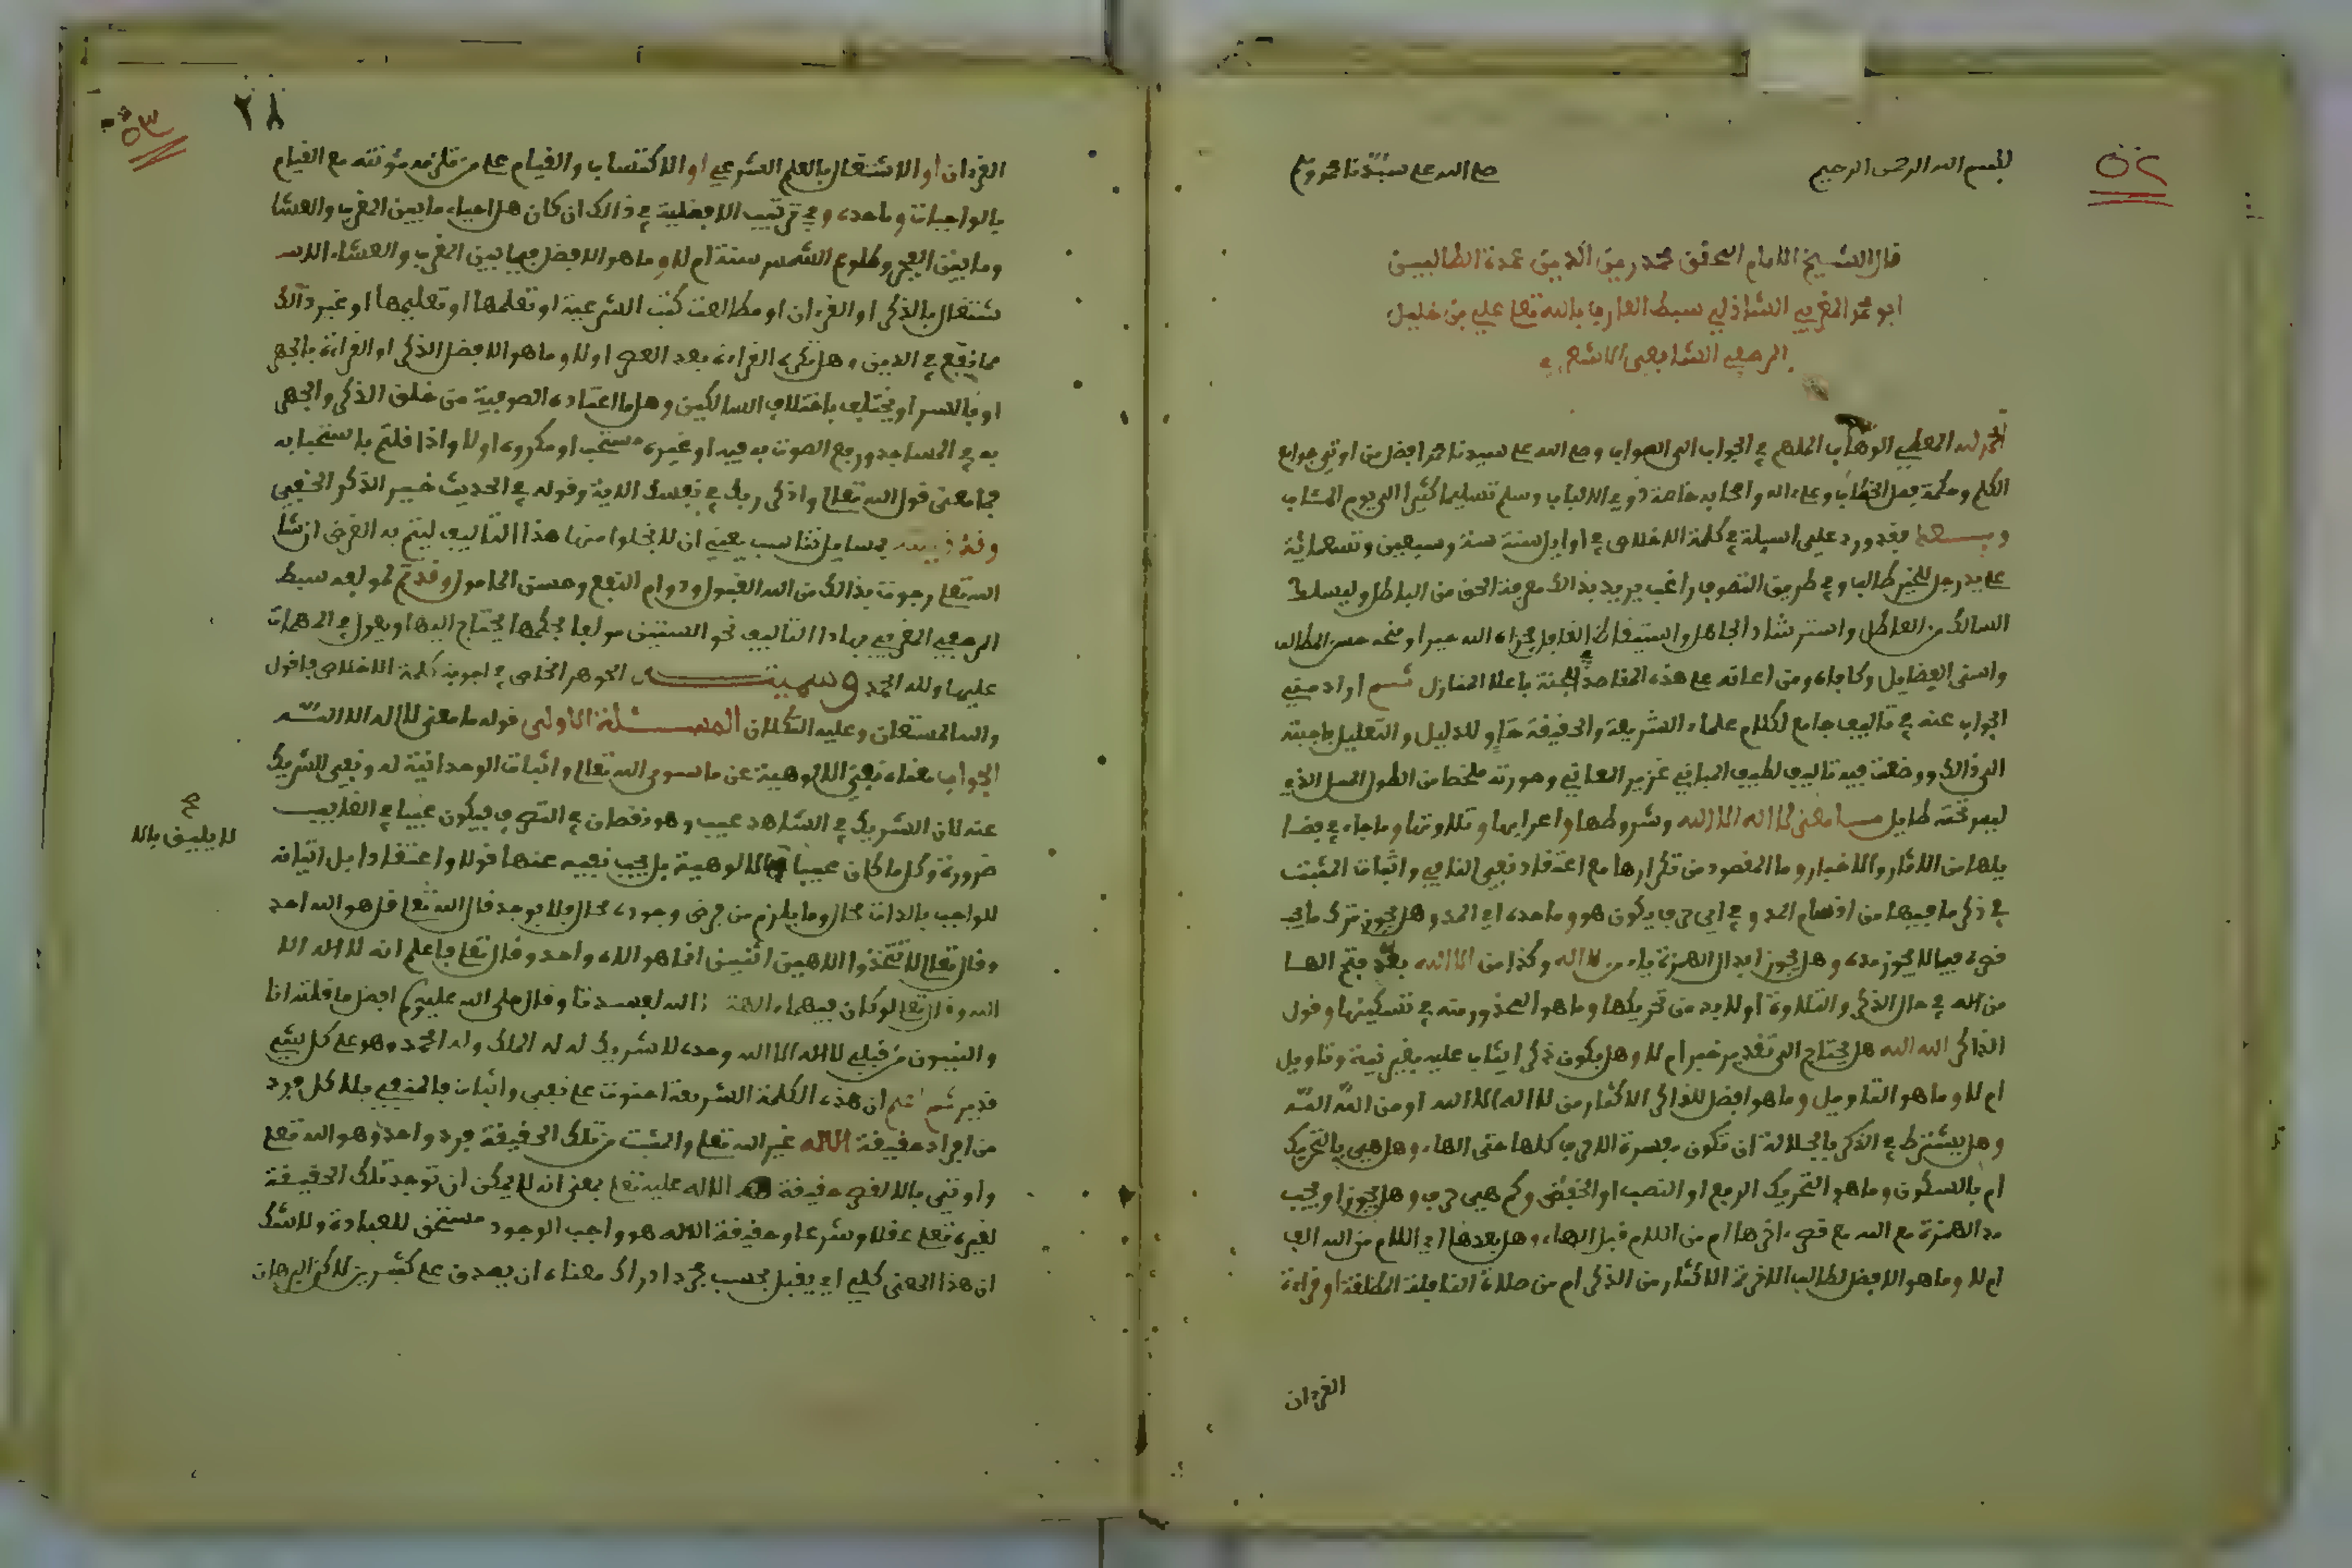 ٥٢
بسم الله الرحمن الرحيم صلى الله على سيدنا محمد وسلم
قال الشيخ الامام المحقق محمد زين الدين عمدة الطالبين
ابو محمد المغربي الشاذلي سبط العارف بالله تعلى علي بن خليل
المرصفي الشافعي الاشعري
الحمد لله المعطي الوهاب الملهم في الجواب الى الصواب وصلى الله على سيدنا محمد افضل من اوتي جوامع
الكلم وحكمة فصل الخطاب وعلى ءاله واصحابه خاصة ذوي الالباب وسلم تسليما كثيرا الى يوم المئاب
وبعد فقد ورد علي اسيلة في كلمة الاخلاص في اوايل سنة ستة وسبعين وتسعمائة
على يد رجل للخير طالبا وفي طريق التصوف راغب يريد بذالك معرفة الحق من الباطل وليسلك
السالك من العاطل واسترشاد الجاهل واستيقاظ الغافل فجزاه الله خيرا ومنحه حسن المطالب
واسنى الفضايل وكافاه ومن اعانه على هذه المقاصد في الجنة باعلا المنازل ثم اراد مني
الجواب عنه في تاليف جامع لكلام علماء الشريعة والحقيقة حاو للدليل والتعليل فاجبته
الى ذالك ووضعت فيه تاليف لطيف المباني غزير المعاني وحررته ملخصا من الطول الممل الذي
ليس تحته طايل ما معنى لا اله الا الله وشروطها واعرابها وتلاوتها وما جاء في فضا
يلها من الاثار والاخبار وما المقصود من تكرارها مع اعتقاد نفي النافي واثبات المثبت
في ذكر ما فيها من اقسام المد وفي اي حرف يكون هو وما حده اي المد وهل يجوز ترك ما يجب
قصره فيما لا يجوز مده وهل يجوز ابدال الهمزة ياء من لا اله وكذا من الا الله بعد فتح الهــا
من اله في حال الذكر والتلاوة او لا بد من تحريكها وما هو المحذور منه في تسكينها وقول
الذاكر الله الله هل يحتاج الى تقدير خبر ام لا وهل يكون ذكرا يثاب عليه بغير نية وتاويل
ام لا وما هو التاويل وما هو افضل للذاكر الاكثار من لا اله الا الله او من الله الله
وهل يشترط في الذكر بالجلالة ان تكون مفسرة الاحرف كلها حتى الهاء وهل هي بالتحريك
ام بالسكون وما هو التحريك الرفع او النصب او الخفض وكم هي حرف وهل يجوز او يجب
مد الهمزة مع الله مع قصر اخرها ام من اللام قبل الهاء وهل بعدها اي اللام من الله الف
ام لا وما هو الافضل لطالب الاخرة الاكثار من الذكر ام من صلاة النافلة المطلقة او قراءة
القرءان
٥٣
٢٨
القرءان او الاشتغال بالعلم الشرعي او الاكتساب والقيام على من تلزمه مئونته مع القيام
بالواجبات وما حده وفي ترتيب الافضلية في ذالك ان كان هل احياء ما بين المغرب والعشا
وما بين الفجر وطلوع الشمس سنة ام لا وما هو الافضل فيما بين المغرب والعشاء الاسـ
ـشتغال بالذكر او القرءان او مطالعة كتب الشرعية او تعلمها او تعليمها او غير ذالك
مما نفع في الدين وهل تكره القراءة بعد العصر او لا وما هو الافضل الذكر او القراءة بالجهر
او بالسر او يختلف باختلاف السالكين وهل ما اعتاده الصوفية من خلق الذكر والجهر
به في المساجد ورفع الصوت به فيه او غيره مستحب او مكروه او لا واذا قلتم باستحبابه
فما معنى قول الله تعلى واذكر ربك في نفسك الاية وقوله في الحديث خير الذكر الخفي
مسايل تناسب يعني ان لا يخلوا منها هذا التاليف ليتم به الغرض ان شا
الله تعلى رجوت بذالك من الله القبول ودوام النفع وحسن المامول وقد تم لمولفه سبط
المرصفي المغربي بهاذا التاليف نحو الستين مولفا بحكمها يحتاج اليها ويعول في المهمات
عليها ولله الحمد وسميتــه الجوهر الخاص في اجوبة كلمة الاخلاص فاقول
والله المستعان وعليه التكلان المسئلة الاولى قوله ما معنى لا اله الا الله
الجواب معناه نفي الالوهية عن ما سوى الله تعلى واثبات الوحدانية له ونفي للشريك
عنه لان الشريك في الشاهد عيب وهو نقصان في التصرف فيكون عيبا في الغايب
ضرورة وكل ما كان عيبا لا يليق بالالوهية بل يجب نفيه عنها قولا واعتقادا بل اتيانه
صح
لا يليق بالا
للواجب بالذات محال وما يلزم من فرض وجوده محال فلا يوجد قال الله تعلى قل هو الله احد
وقال تعلى لا تتخذوا الاهين اثنين انما هو اله واحد وقال تعلى فاعلم انه لا اله الا
الله وقال تعلى لو كان فيهما ءالهة الا الله لفسدتا وقال صلى الله عليه وسلم افضل ما قلته انا
والنبيون من قبلي لا اله الا الله وحده لا شريك له له الملك وله الحمد وهو على كل شيء
قدير ثم اعلم ان هذه الكلمة الشريفة احتوت على نفي واثبات فالمنفي بلا كل فرد
من افراد حقيقة الاله غير الله تعلى والمثبت من تلك الحقيقة فرد واحد وهو الله تعلى
واوتي بالا لقصر حقيقة الاله عليه تعلى بمعنى انه لا يمكن ان توجد تلك الحقيقة
لغيره تعلى عقلا وشرعا وحقيقة الاله هو واجب الوجود مستحق للعبادة ولا شك
ان هذا المعنى كلي اي يقبل بحسب مجرد ادراك معناه ان يصدق على كثيرين لاكن البرهان